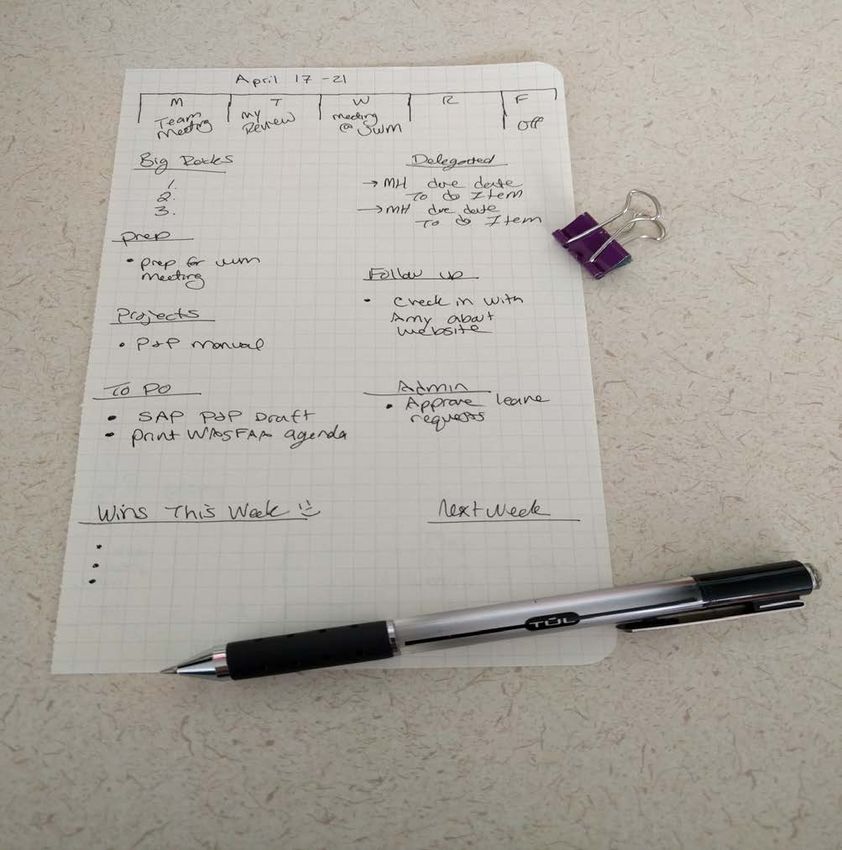 April 17-21
M T W R F
Team Meeting
My Review
meeting @ UWM
Off
Big Rocks
1.
2.
3.
Prep
• Prep for UWM
Meeting
Projects
• P&P Manual
To Do
• SAP P&P Draft
• Print WASFAA agenda
Delegated
→ MH due date
To do Item
→ MH due date
To do Item
Follow up
• Check in with
Amy about
website
Admin
• Approve leave
requests
Wins This Week :)
Next Week
TUL